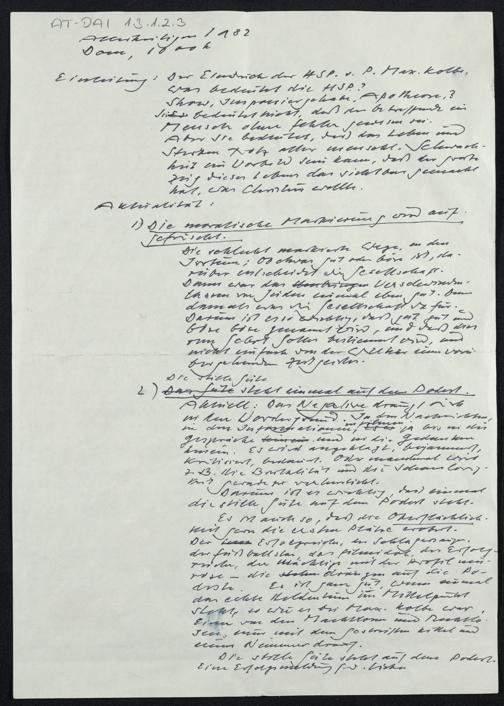 AT-DAI 13.1.2.3
Allerheiligen 1982
Dom, 10 00 h
Einleitung: Der Eindruck der HSP. v. P. Max. Kolbe.
Was bedeutet die HSP.?
Show, Apotheose?
bedeutet nicht, daß der betreffende ein
Mensch ohne Fehler gewesen sei.
Aber sie bedeutet, daß das Leben und
Sterben trotz aller menschl. Schwach-
heit ein Vorbild sein kann, daß
dieses Lebens das sichtbar gemacht
hat, was Christus wollte.
Aktualität:
1) Die moralische Markierung wird auf-
gefrischt.
Die schlecht markierte Wege, in den
Ob etwas gut oder böse ist, da-
rüber entscheidet die Gesellschaft.
Dann war das Verschwinden-
lassen von Juden einmal eben gut. Denn
damals war die Gesellschaft dafür.
Darum ist es so wichtig, daß gut gut und
böse böse genannt wird, und daß das
vom Gebot Gottes bestimmt wird, und
nicht einfach von der Wellen eines vorü-
bergehenden Zeitgeistes.
Die stille Güte
2) Das Gute steht einmal auf dem Podest.
Aktuell. Das Negative drängt sich
in den Vordergrund. In den Nachrichten,
in den Informationen, ja bis in die
Gespräche und in die Gedanken
hinein. Es wird angeklagt, bejammert,
kritisiert, bedauert. Oder manchmal wird
z.B. die Brutalität und die Schamlosig-
keit geradezu verherrlicht.
Darum ist es wichtig, daß einmal
die stille Güte auf dem Podest steht.
Es ist auch so, daß die Oberflächlich-
keit gern die ersten Plätze erobert.
Der Erfolgreiche, der Schlagersänger,
der Fußballstar, das Filmidol, der Erfolg-
reiche, der Mächtige und der Profil
– die drängen auf die Po-
deste. Es ist ganz gut, wenn einmal
das echte Heldentum im Mittelpunkt
steht, so wie es bei Max. Kolbe war.
Einer von den Machtlosen und Rechtlo-
sen, einer mit dem gestreiften Kittel und
einer Nummer drauf.
Die stille Güte steht auf dem Podest.
Eine Erfolgsmeldung